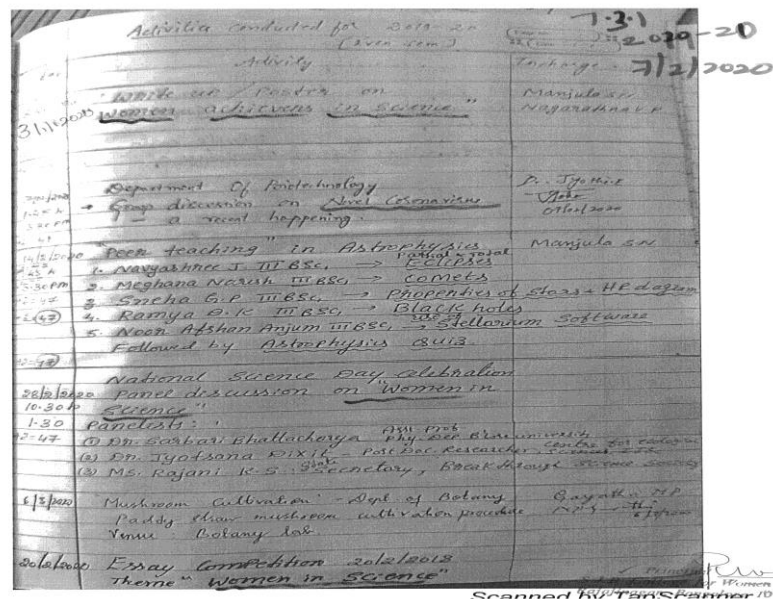 7.3.1
Activities conducted for 2019-20
(Even sem)
2019-20
7/2/2020
Activity
Incharge
"Write up / Poster on
Women achievers in Science"
Manjula S.N
Nagarathna V.P
31/1/2020
Department Of Biotechnology
Group discussion on Novel Coronavirus
- a recent happening.
Dr. Jyothi
"Peer teaching" in Astrophysics
Manjula S.N
14/2/2020
1. Navyashree J III BSc, → Partial & Total Eclipses
2. Meghana Naresh III BSc, → Comets
3. Sneha G.P III BSc, → Properties of Stars & HR diagram
4. Ramya B.K III BSc, → Black holes
5. Noor Afshan Anjum III BSc, → Stellarium Software
Followed by Astrophysics Quiz
National Science Day Celebration
28/2/2020 Panel discussion on "Women in
10.30 to Science"
1.30 Panelists:
(1) Dr. Sarbari Bhattacharya Asst. Prof. Phy. Dep B'lore university
(2) Dr. Jyotsana Dixit - Post Doc. Researcher, Centre for ecological
(3) Ms. Rajani K.S. State Secretary, Breakthrough Science Society
6/3/2020 Mushroom Cultivation: - Dept. of Botany
Gayathri
Paddy straw mushroom cultivation procedure
Venue: Botany lab.
20/2/2020 Essay Competition 20/2/2018
Theme "Women in Science"
Principal
for Women
Scanned by TapScanner